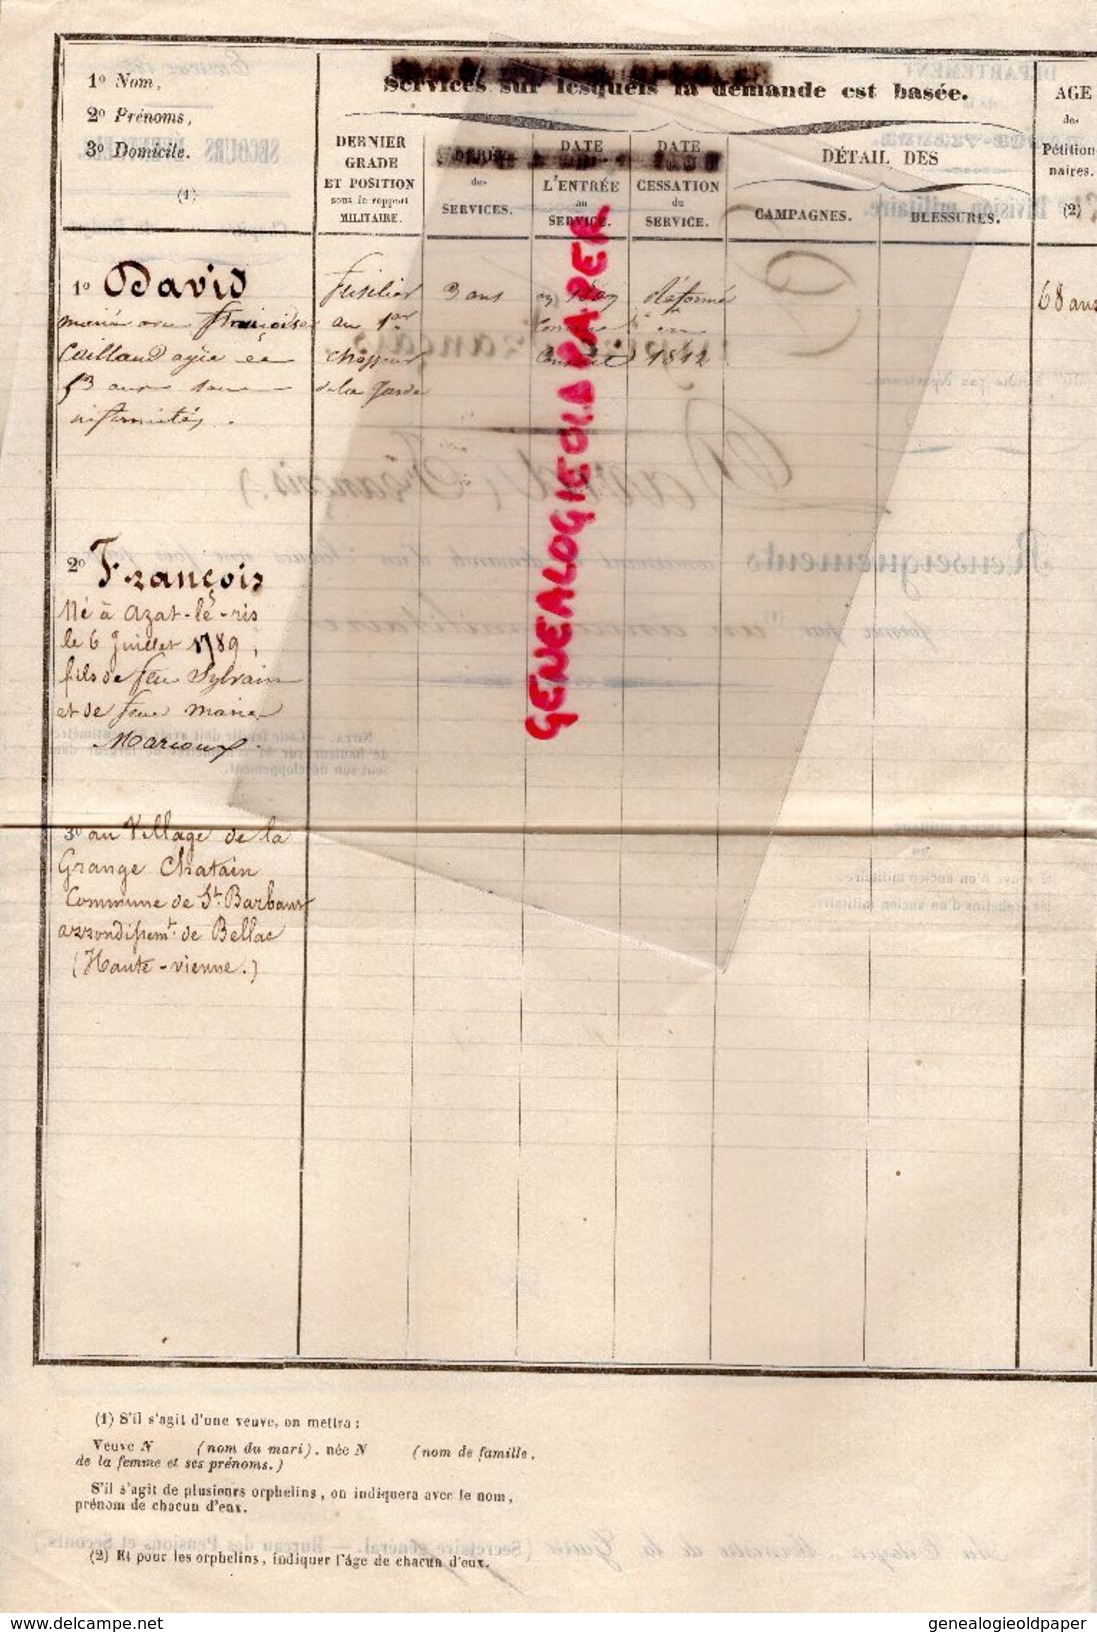 1º Nom,
2º Prénoms,
3º Domicile.
(1)
Services sur lesquels la demande est basée.
DERNIER
GRADE
ET POSITION
sous le rapport
MILITAIRE.
DURÉE
des
SERVICES.
DATE
de
L'ENTRÉE
au
SERVICE.
DATE
de la
CESSATION
du
SERVICE.
DÉTAIL DES
CAMPAGNES.
BLESSURES.
AGE
des
Pétition-
naires.
(2)
1º David
marié avec françoise
Caillaud agée de
53 ans
infirmités.
fusilier
au 1er
chasseur
de la garde
3 ans
1809
Comme
Conscrit
Réformé
en
1812
68 ans
2º François
Né à azat-le-ris
le 6 Juillet 1789,
fils de feu Sylvain
et de feue marie
Marcoux.
3º au Village de la
Grange Chatain
Commune de St. Barbant
arrondissemt. de Bellac
(Haute-vienne.)
GENEALOGIEOLDPAPER
(1) S'il s'agit d'une veuve, on mettra:
Veuve N (nom du mari), née N (nom de famille,
de la femme et ses prénoms.)
S'il s'agit de plusieurs orphelins, on indiquera avec le nom,
prénom de chacun d'eux.
(2) Et pour les orphelins, indiquer l'âge de chacun d'eux.
www.delcampe.net
genealogieoldpaper